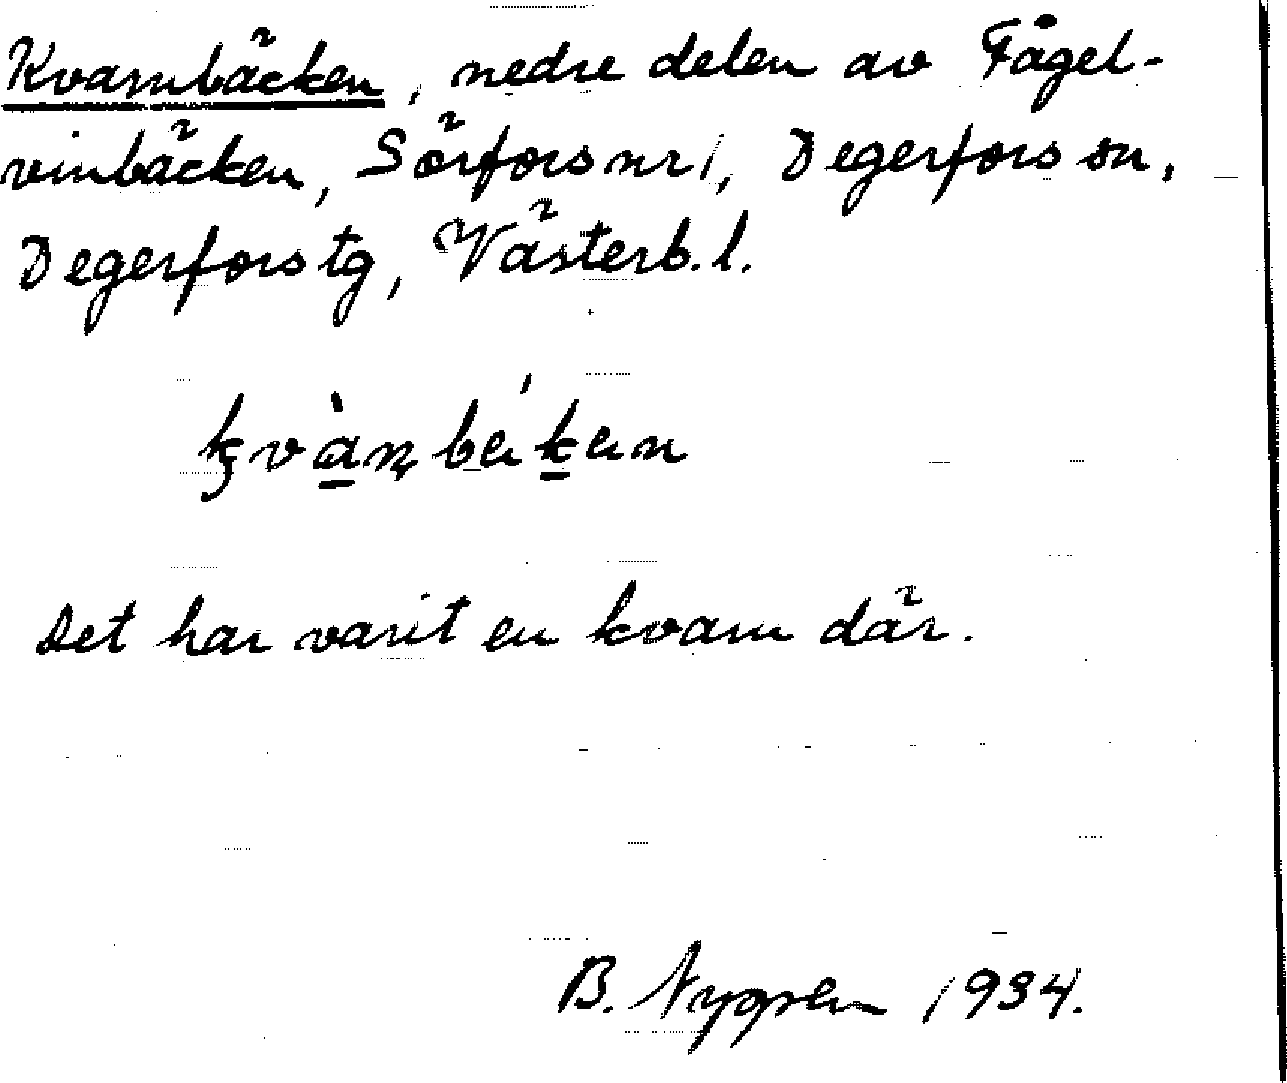 Kvarnbäcken, nedre delen av Fågel-
vinbäcken, Sörfors nr 1, Degerfors sn,
Degerfors tg, Västerb. l.
kvànbéken
Det har varit en kvarn där.
B. Nygren 1934.